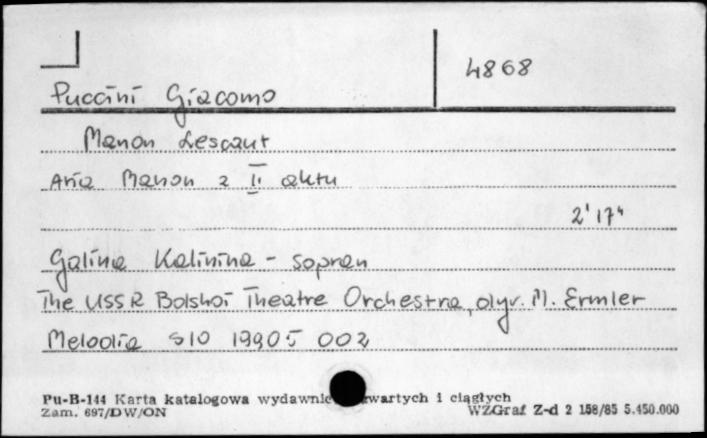 4868
Puccini Giacomo
Manon Lescaut
Aria Manon z II aktu
2'17"
Galina Kalinina - sopran
The USSR Bolshoi Theatre Orchestra, dyr. M. Ermler
Melodia S10 19905 002
Pu-B-144 Karta katalogowa wydawnic wartych i ciągłych
Zam. 697/DW/ON WZGraf Z-d 2 158/85 5.450.000